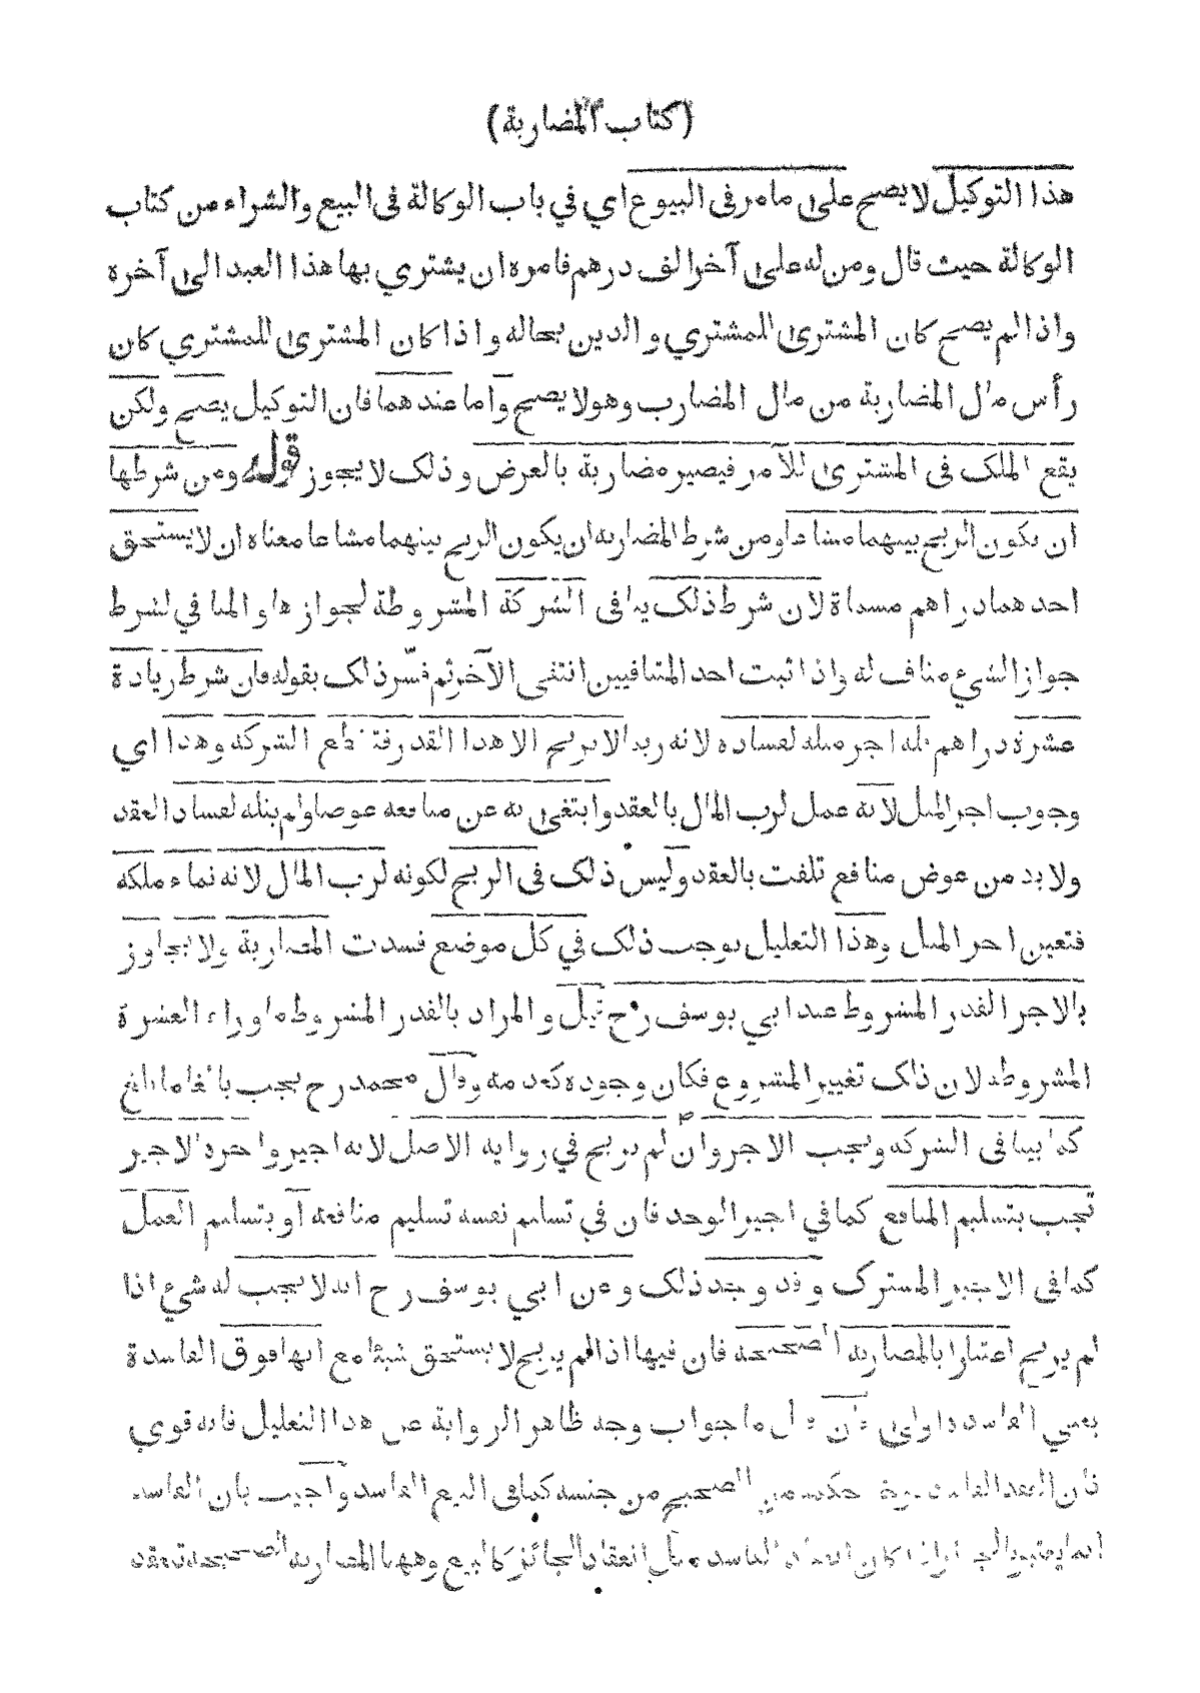 (كتاب المضاربة)
هذا التوكيل لا يصح على ما مر فى البيوع اي في باب الوكالة فى البيع والشراء من كتاب
الوكالة حيث قال ومن له على آخر الف درهم فامره ان يشتري بها هذا العبد الى آخره
واذا لم يصح كان المشترى للمشتري والدين بحاله واذا كان المشترى للمشتري كان
رأس مال المضاربة من مال المضارب وهو لا يصح واما عندهما فان التوكيل يصح ولكن
يقع الملك فى المشترى للآمر فيصير مضاربة بالعرض وذلك لا يجوز قوله ومن شرطها
ان يكون الربح بينهما مشاعا ومن شرط المضاربه ان يكون الربح بينهما مشاعا معناه ان لا يستحق
احدهما دراهم مسماة لان شرط ذلك ينافى الشركة المشروطة لجوازها والمنافي لشرط
جواز الشيء مناف له واذا ثبت احد المتنافيين انتفى الآخر ثم فسّر ذلك بقوله فان شرط زيادة
عشرة دراهم فله اجر مثله لفساده لانه ربما لا يربح الا هذا القدر فتقطع الشركه وهذا اي
وجوب اجر المثل لانه عمل لرب المال بالعقد وابتغى به عن منافعه عوضا ولم ينله لفساد العقد
ولا بد من عوض منافع تلفت بالعقد وليس ذلك فى الربح لكونه لرب المال لانه نماء ملكه
فتعين اجر المثل وهذا التعليل يوجب ذلك في كل موضع فسدت المضاربة ولا يجاوز
بالاجر القدر المشروط عند ابي يوسف رح قيل والمراد بالقدر المشروط ما وراء العشرة
المشروطه لان ذلك تغيير المشروع فكان وجوده كعدمه وقال محمد رح يجب بالغا ما بلغ
كما بينا فى الشركه ويجب الاجر وان لم يربح في روايه الاصل لانه اجير واجرة الاجير
تجب بتسليم المنافع كما في اجير الوحد فان في تسليم نفسه تسليم منافعه او بتسليم العمل
كما فى الاجير المشترك وقد وجد ذلك وعن ابي يوسف رح انه لا يجب له شيء اذا
لم يربح اعتبارا بالمضاربه الصحيحه فان فيها اذا لم يربح لا يستحق شيئا مع انها فوق الفاسدة
ففي الفاسده اولى فان قال ما جواب وجه ظاهر الرواية عن هذا التعليل فانه قوي
فان العقد الفاسد يؤخذ حكمه من الصحيح من جنسه كما فى البيع الفاسد واجيب بان الفاسد
انما يعتبر بالجائز اذا كان انعقاد الفاسد مثل انعقاد الجائز كالبيع وههنا المضاربه الصحيحه تنعقد